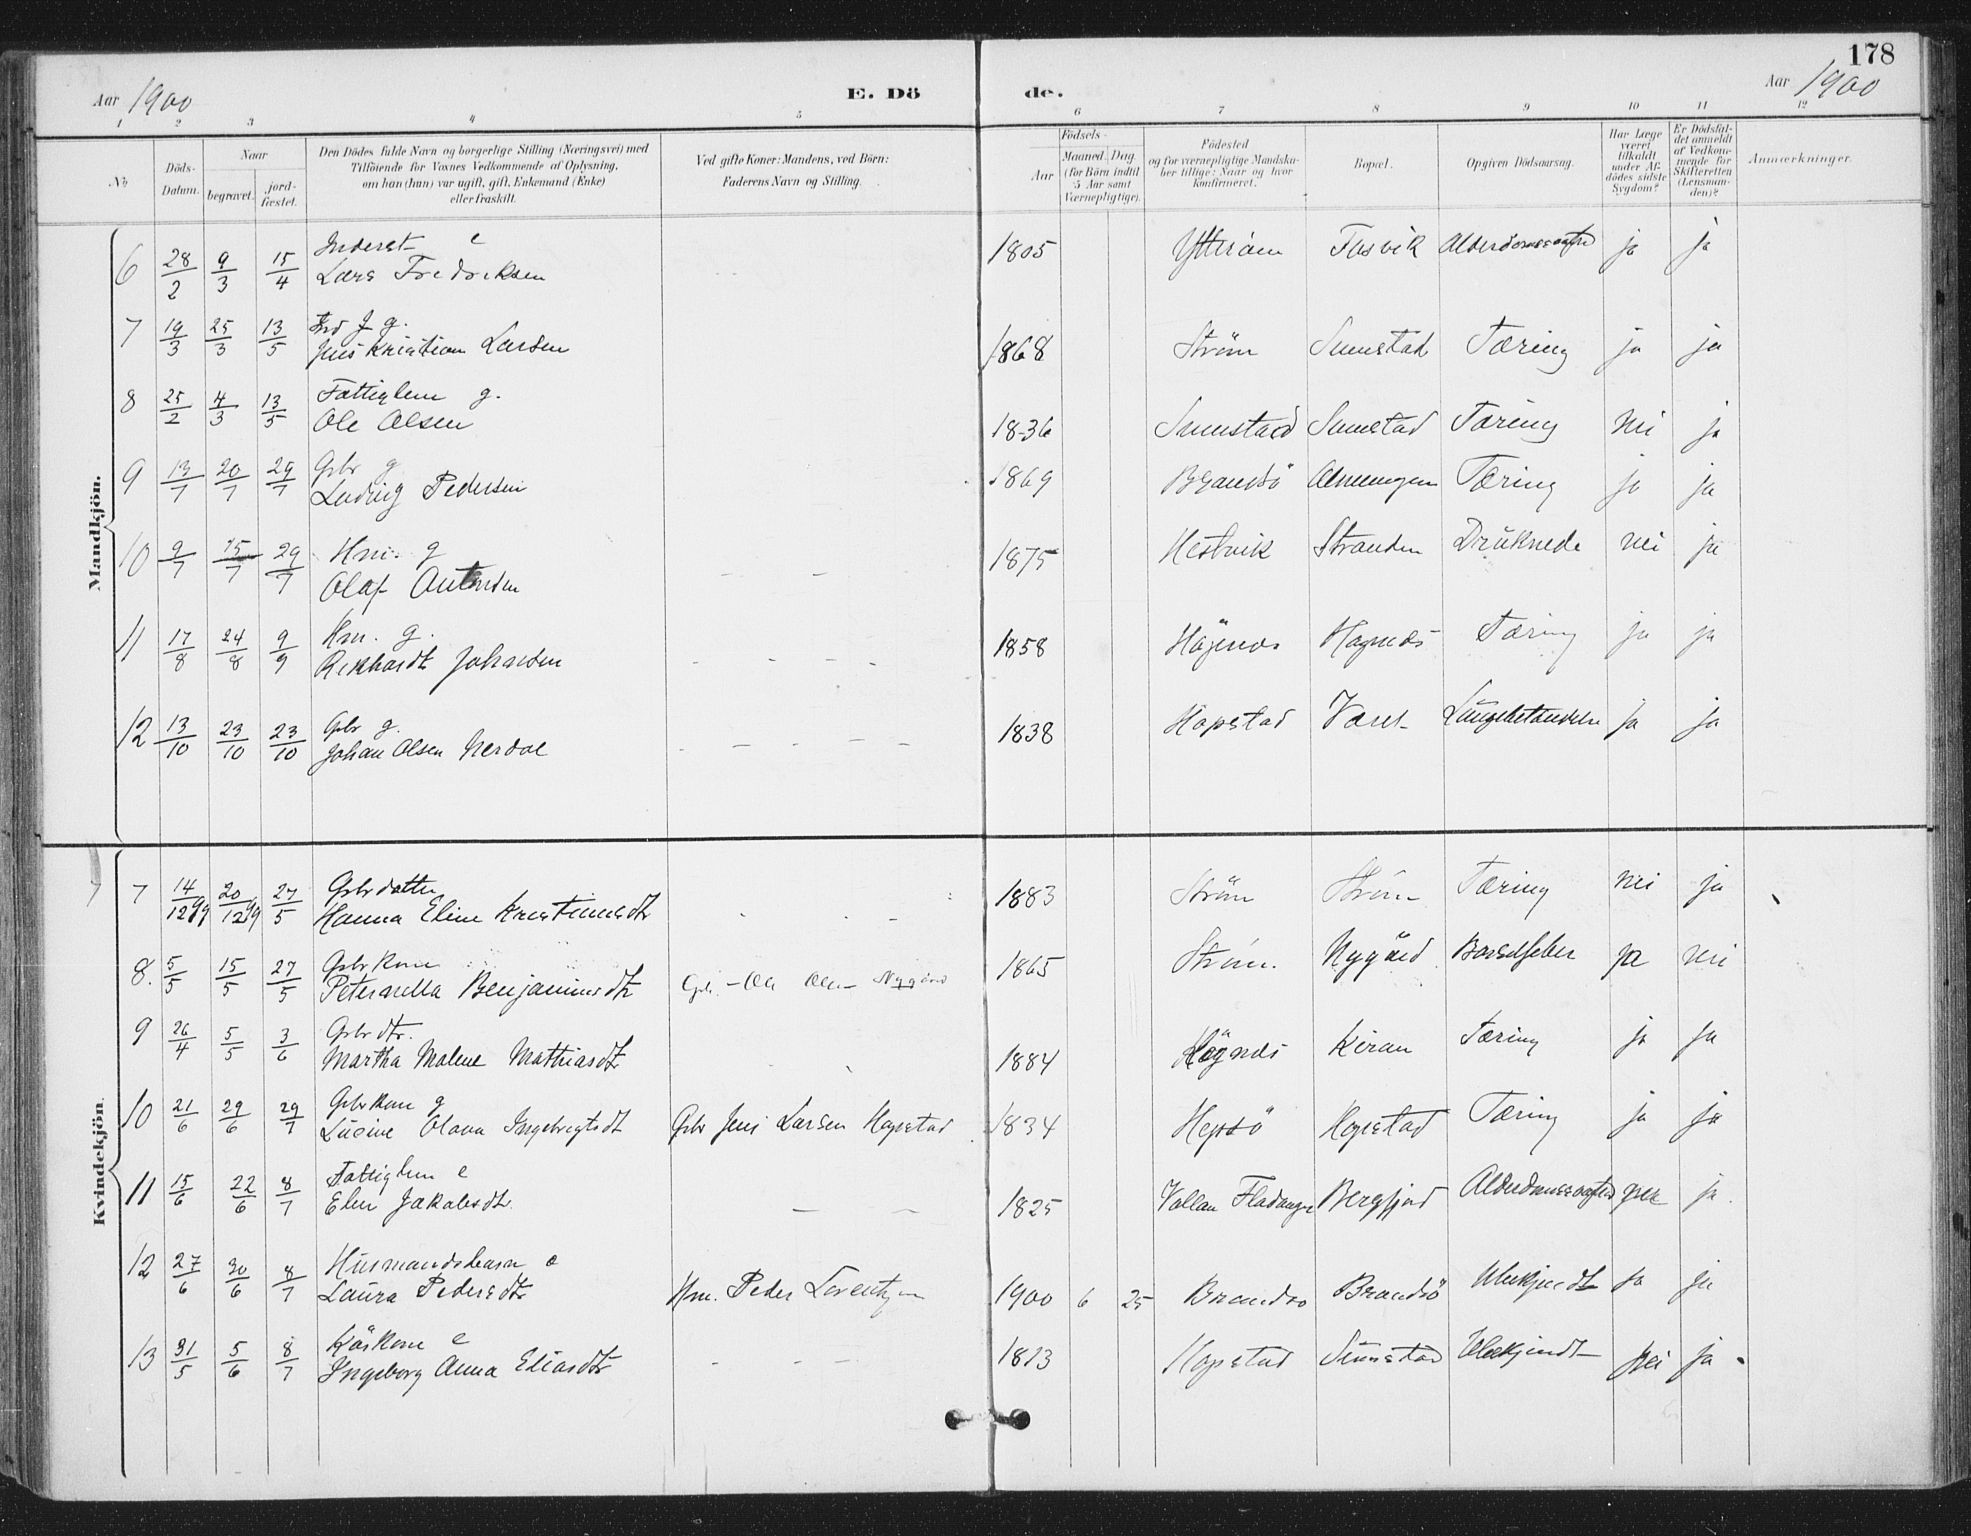 178
Aar 1900
E. Dö
de.
Aar 1900
1 2 3 4 5 6 7 8 9 10 11 12
No
Döds-Datum.
Naar
begravet.
jord-fæstet.
Den Dödes fulde Navn og borgerlige Stilling (Næringsvei) med
Tilföiende for Voxnes Vedkommende af Oplysning,
om han (hun) var ugift, gift, Enkemand (Enke)
eller fraskilt.
Ved gifte Koner: Mandens, ved Börn:
Faderens Navn og Stilling.
Födsels-
Aar
Maaned. Dag.
(for Börn indtil
5 Aar samt
Værnepligtige).
Födested
og for værnepligtige Mandska-
ber tillige: Naar og hvor
konfirmeret.
Bopæl.
Opgiven Dödsaarsag.
Har Læge
været
tilkaldt
under Af-
dödes sidste
Sygdom?
Er Dödsfal-
det anmeldt
af Vedkom-
mende for
Skifteretten
(Lensman-
den)?
Anmærkninger.
Mandkjön.
6 28/2 9/3 15/4 Inderst e
Lars Fredriksen 1805 Fosvik ja ja
7 19/3 25/3 13/5 g.
Jens Kristian Larsen 1868 Ström Sumstad Tæring ja ja
8 25/2 4/3 13/5 Fattiglem g.
Ole Olsen 1836 Sumstad Sumstad Tæring nei ja
9 13/7 20/7 29/7 Gbr g
Ludvig Pedersen 1869 Brandsö Almenningen Tæring ja ja
10 9/7 15/7 29/7 Hm. g
Olaf Antonsen 1875 Hestvik Stranden Druknede nei ja
11 17/8 24/8 9/9 Hm. g.
Rikhardt Johansen 1858 Hagnes Tæring ja ja
12 13/10 23/10 23/10 Gbr g.
Johan Olsen Nerdal 1838 Hopstad Lungebetændelse ja ja
Kvindekjön.
7 14/12 99 20/12 99 27/5 Gbrdatter
Hanna Eline Kristiansdtr 1883 Ström Ström Tæring nei ja
8. 5/5 15/5 27/5 Gbrkone
Peternella Benjaminsdtr Gbr. Ole Olsen Nygård 1865 Ström. Nygård Barselfeber ja nei
9 26/4 5/5 3/6 Gbrdtr.
Martha Malene Mathiasdtr 1884 Kiran Tæring ja ja
10 21/6 29/6 29/7 Gbrkone g
Lusine Olava Ingebrigtsdt Gbr Jens Larsen Hopstad 1834 Hepsö Hopstad Tæring ja ja
11 15/6 22/6 8/7 Fattiglem e
Elen Jakobsdtr. 1825 Vallan Fladanger Bergfjord ja
12 27/6 30/6 8/7 Husmandsbarn
Laura Pedersdtr Hm. Peder Lorentzen 1900 6 25 Brandsö Brandsö Ubekjendt ja ja
13 31/5 5/6 8/7 Kårkone e
Ingeborg Anna Eliasdtr 1813 Hopstad Sumstad Ubekjendt nei ja